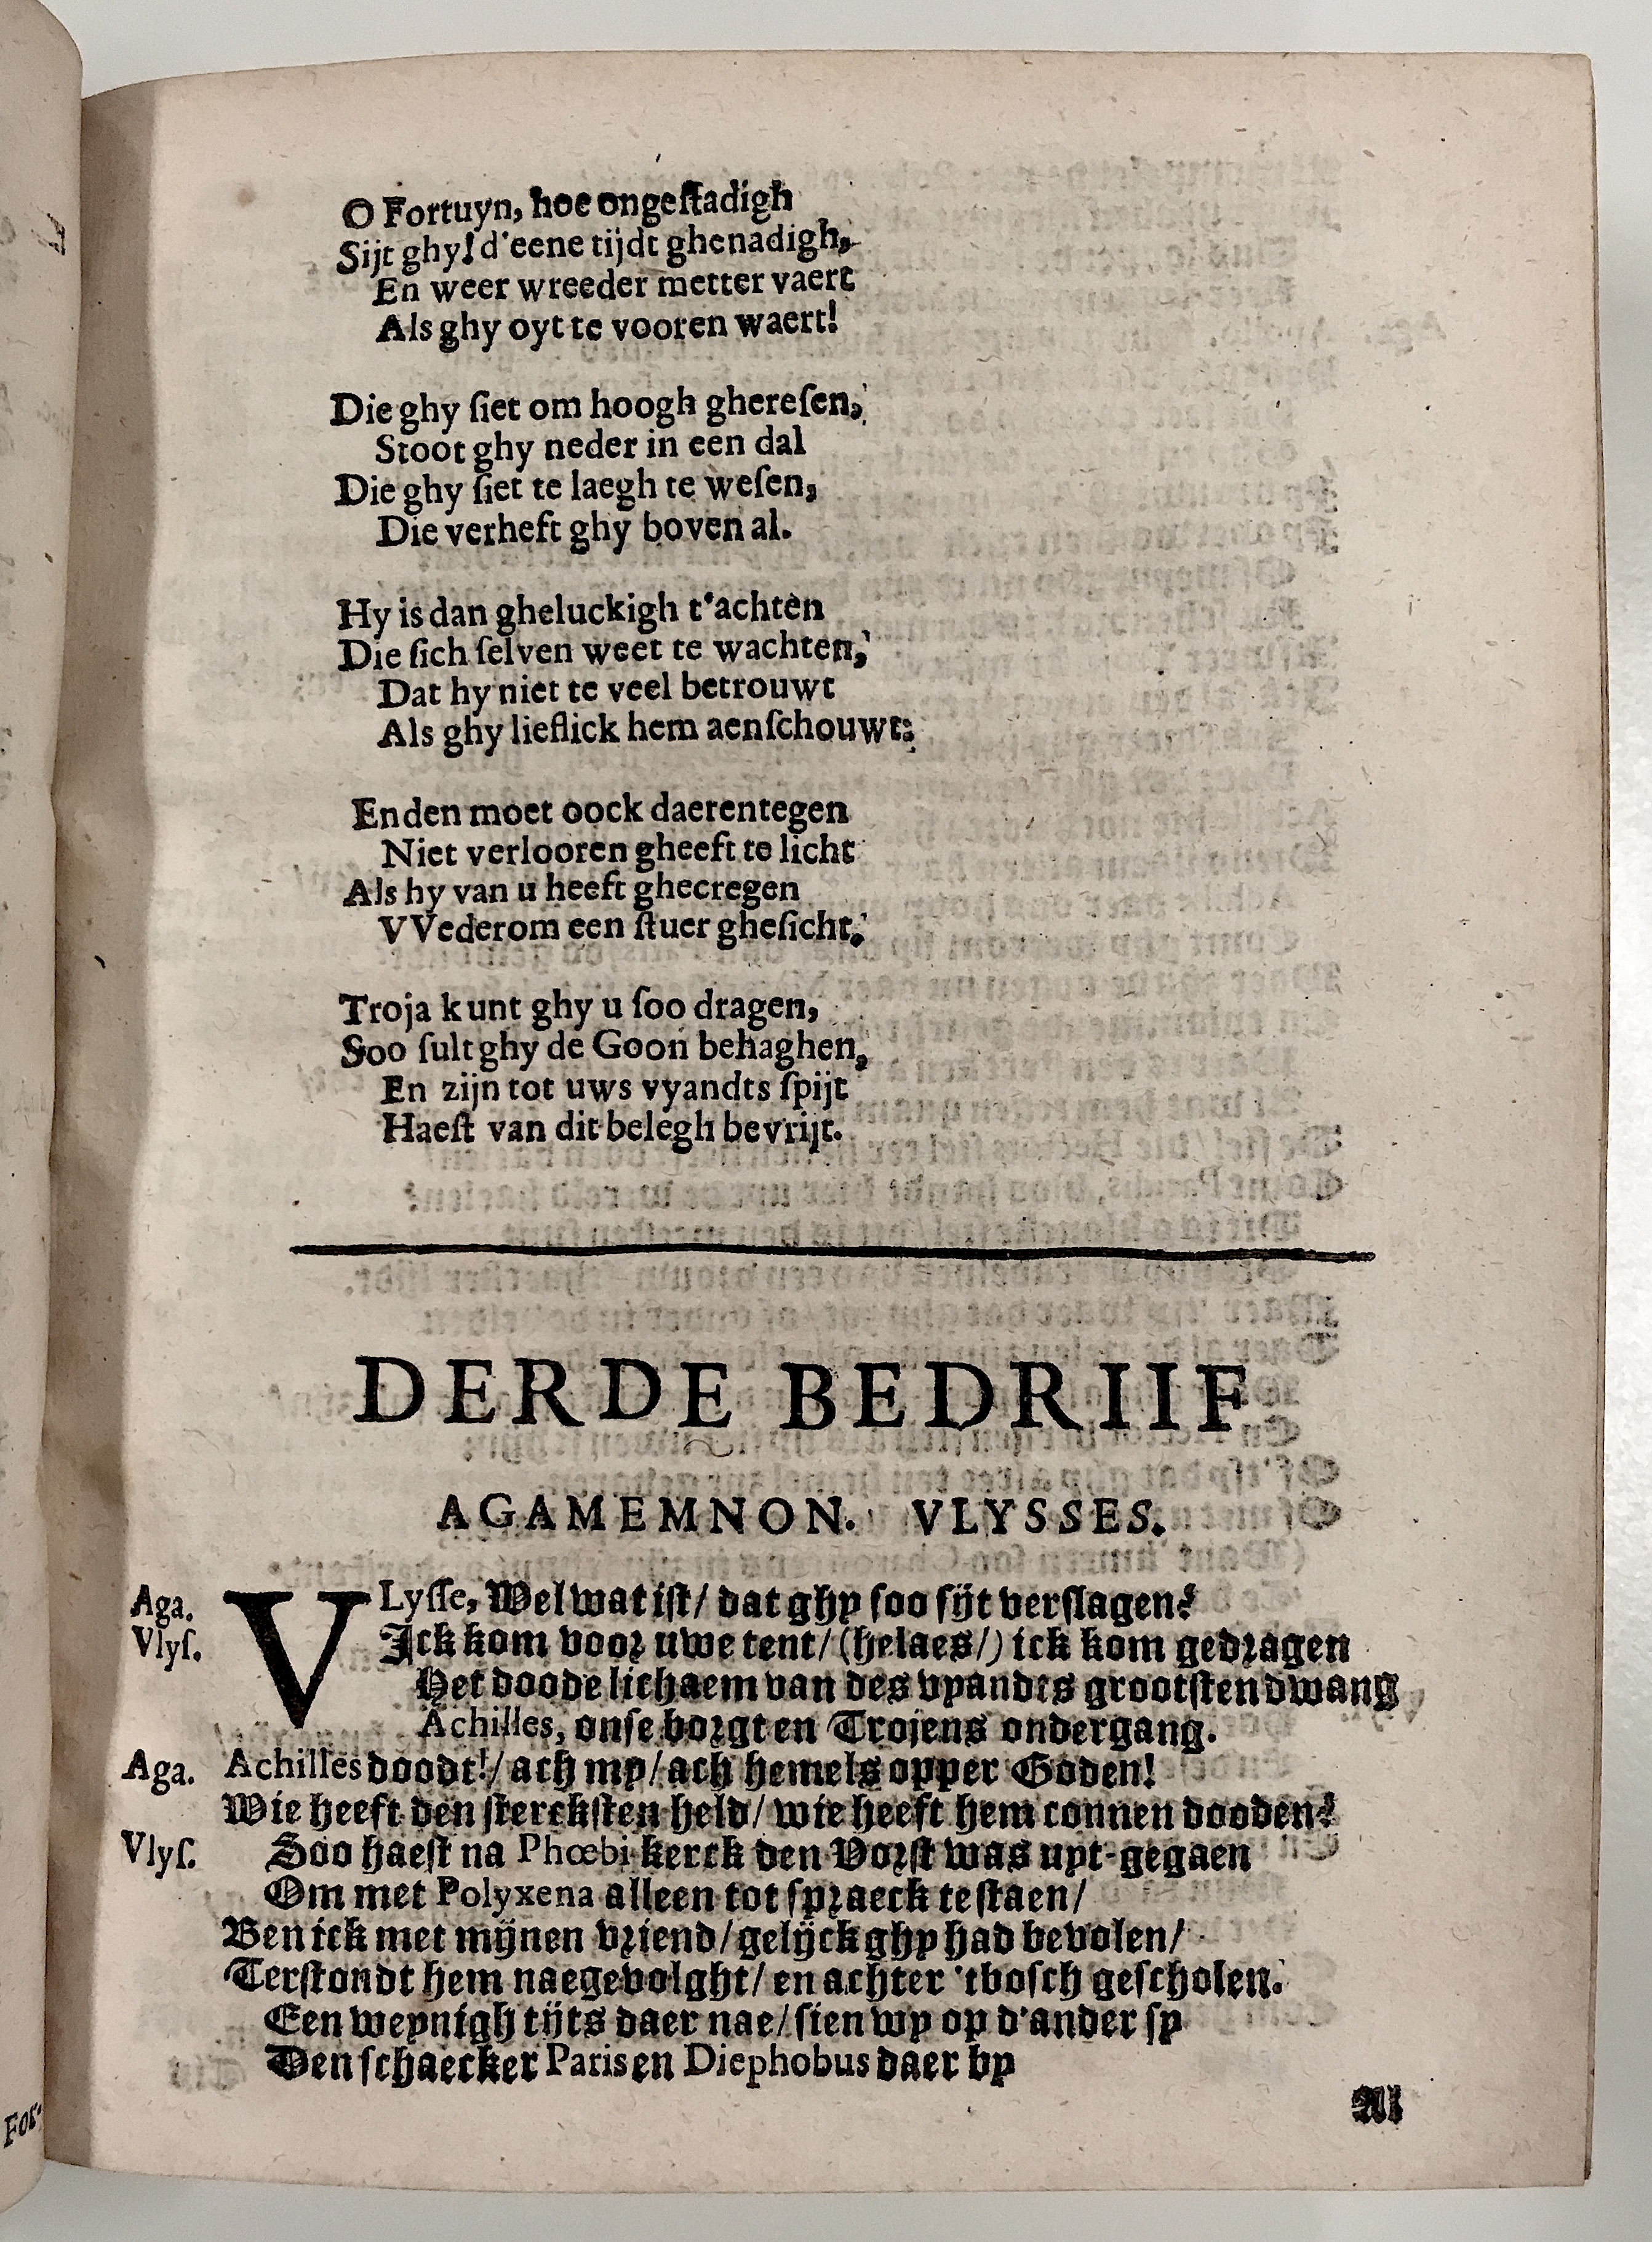 O Fortuyn, hoe ongeſtadigh
Sijt ghy! d'eene tijdt ghenadigh,
En weer wreeder metter vaert
Als ghy oyt te vooren waert!
Die ghy ſiet om hoogh ghereſen,
Stoot ghy neder in een dal
Die ghy ſiet te laegh te weſen,
Die verheft ghy boven al.
Hy is dan gheluckigh t'achten
Die ſich ſelven weet te wachten,
Dat hy niet te veel betrouwt
Als ghy lieflick hem aenſchouwt;
En den moet oock daerentegen
Niet verlooren gheeft te licht
Als hy van u heeft ghecregen
VVederom een ſtuer gheſicht.
Troja kunt ghy u ſoo dragen,
Soo ſult ghy de Goon behaghen,
En zijn tot uws vyandts ſpijt
Haeſt van dit belegh bevrijt.
DERDE BEDRIIF
AGAMEMNON. VLYSSES.
Aga. VLyſſe, Wel wat iſt/ dat ghy ſoo ſijt verſlagen?
Vlyſ. Ick kom voor uwe tent/ (helaes/) ick kom gedragen
Het doode lichaem van des vyandts grootſten dwang
Achilles, onſe borgt en Trojens ondergang.
Aga. Achilles doodt!/ ach my/ ach hemels opper Goden!
Wie heeft den ſterckſten held/ wie heeft hem connen dooden?
Vlyſ. Soo haeſt na Phœbi kerck den Vorſt was uyt-gegaen
Om met Polyxena alleen tot ſpraeck te ſtaen/
Ben ick met mijnen vriend/ gelijck ghy had bevolen/
Terſtondt hem naegevolght/ en achter 'tboſch geſcholen.
Een weynigh tijts daer nae/ ſien wy op d'ander ſy
Den ſchaecker Paris en Diephobus daer by
Al
For-